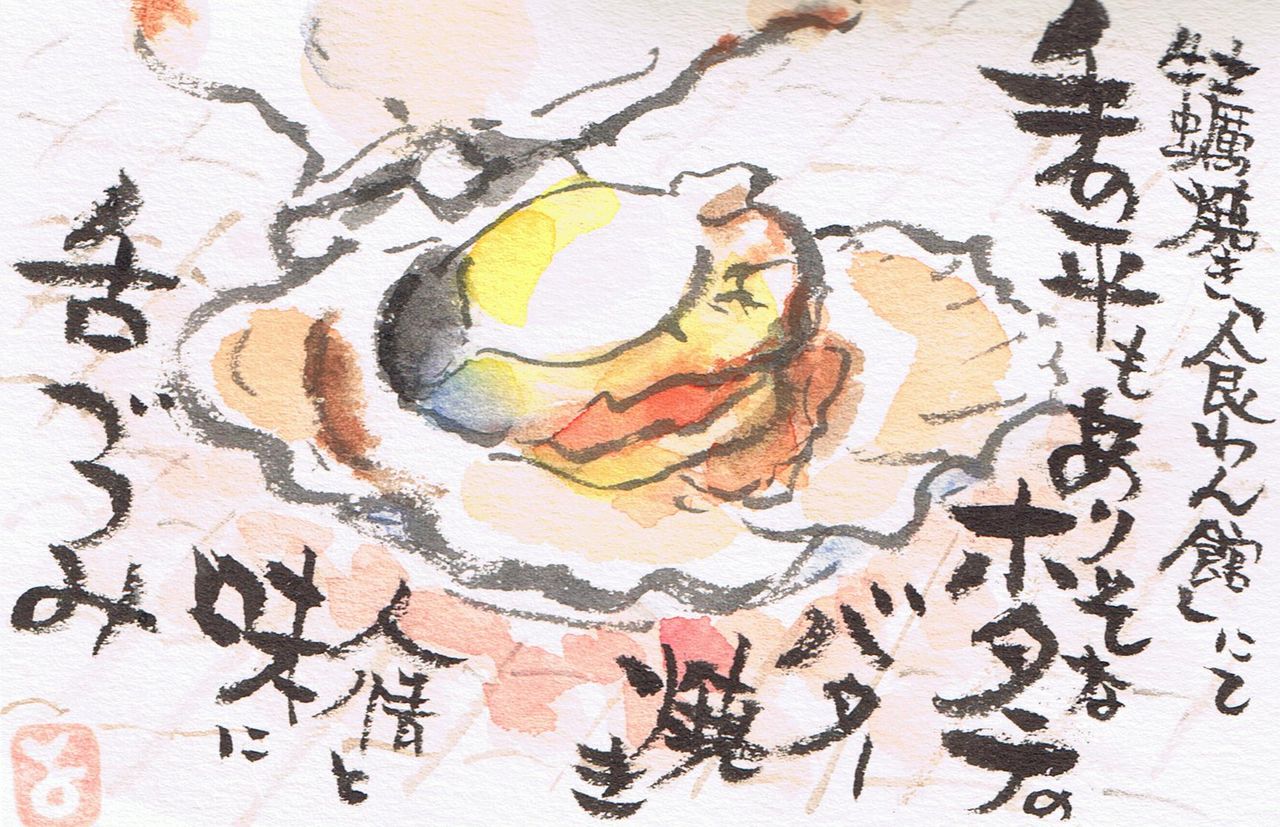 牡蠣焼き「食わん館」にて
手の平もありそな
ホタテの
バター
焼き
人情と
味に
舌づつみ